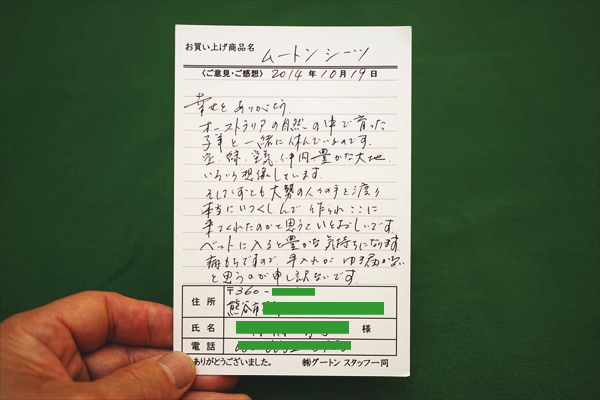 お買い上げ商品名 ムートンシーツ
〈ご意見・ご感想〉 2014年10月19日
幸せをありがとう。
オーストラリアの自然の中で育った
子羊と一緒に休んでいるのです。
空、緑、空気、仲間豊かな大地
いろいろ想像しています。
そしてとても大勢の人々の手を渡り
本当にいつくしんで作られここに
来てくれたのかと思うといとおしいです。
ベットに入ると豊かな気持ちになります
病もちですので、手入れが ゆき届かない
と思うのが申し訳ないです。
住所 〒360-
熊谷市
氏名 様
電話
ありがとうございました。 ㈱グートン スタッフ一同